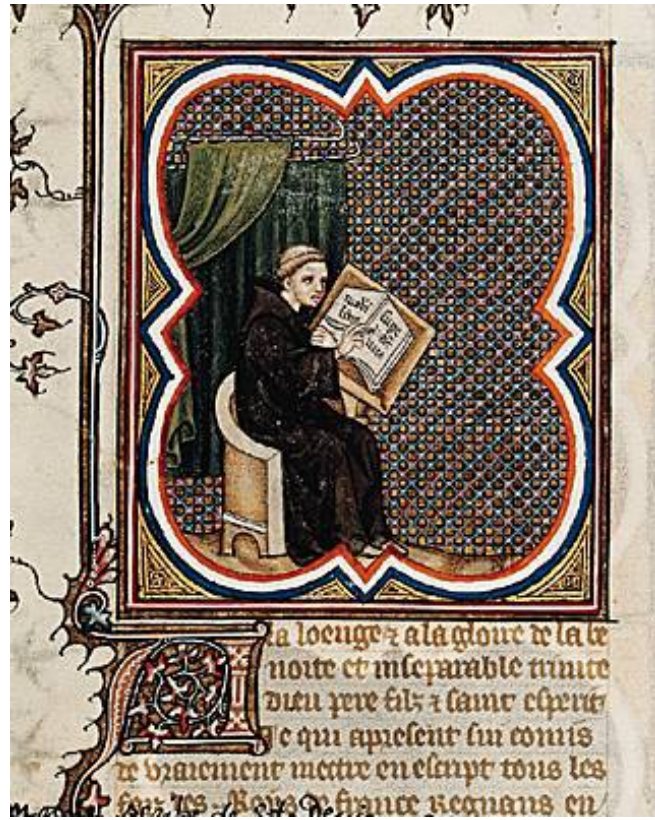 A la loenge ⁊ a la gloire de la be
noite et inseparable trinite
dieu pere filz ⁊ saint esperit
Je qui apresent sui commis
de vraiement mettre en escript tous les
faiz des Roys de france regnans en